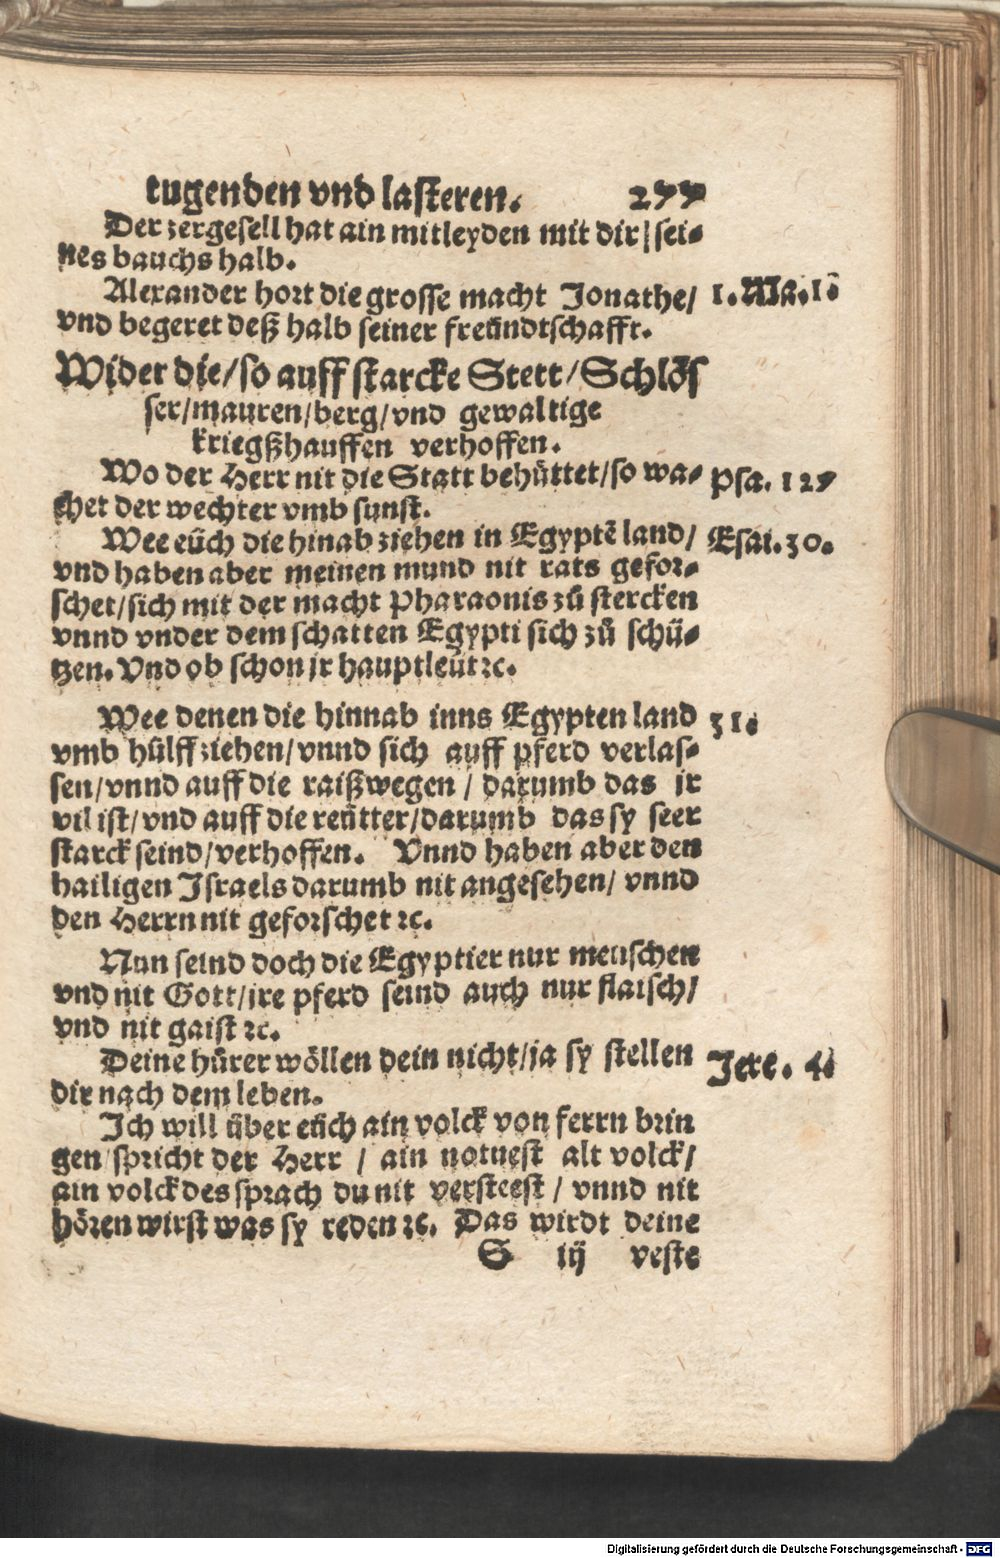 tugenden vnd lasteren. 277
Der zergesell hat ain mitleyden mit dir/ sei⸗
nes bauchs halb.
Alexander hort die grosse macht Jonathe/ 1. Ma. 10
vnd begeret deß halb seiner freündtschafft.
Wider die/so auff starcke Stett/Schlös
ser/mauren/berg/vnd gewaltige
kriegßhauffen verhoffen.
Wo der Herr nit die Statt behüttet/so wa⸗ Psa. 127
chet der wechter vmb sunst.
Wee eüch die hinab ziehen in Egyptē land/ Esai. 30.
vnd haben aber meinen mund nit rats gefor⸗
schet/sich mit der macht Pharaonis zů stercken
vnnd vnder dem schatten Egypti sich zů schü⸗
tzen. Vnd ob schon jr hauptleüt ⁊c.
Wee denen die hinnab inns Egypten land 31.
vmb hülff ziehen/vnnd sich auff pferd verlas⸗
sen/vnnd auff die raißwegen / darumb das jr
vil ist/vnd auff die reütter/darumb das sy seer
starck seind/verhoffen. Vnnd haben aber den
hailigen Israels darumb nit angesehen/ vnnd
den Herrn nit geforschet ⁊c.
Nun seind doch die Egyptier nur menschen
vnd nit Gott/ire pferd seind auch nur flaisch/
vnd nit gaist ⁊c.
Deine hůrer wöllen dein nicht/ja sy stellen Jere. 4.
dir nach dem leben.
Ich will über eüch ain volck von ferrn brin
gen spricht der Herr / ain notuest alt volck/
ain volck des sprach du nit versteest / vnnd nit
hören wirst was sy reden ⁊c. Das wirdt deine
S iij veste
Digitalisierung gefördert durch die Deutsche Forschungsgemeinschaft - DFG